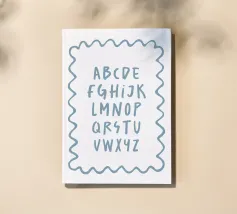 ABCDE
FGHiJK
LMNOP
QRSTU
VWXYZ